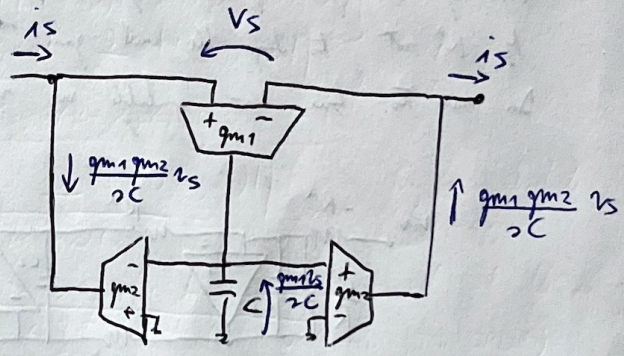 Vs
is
is
+ −
gm1
gm1 gm2
sC
vs
gm1 gm2
sC
vs
−
gm2
+
C
gm1 vs
sC
+
gm2
−